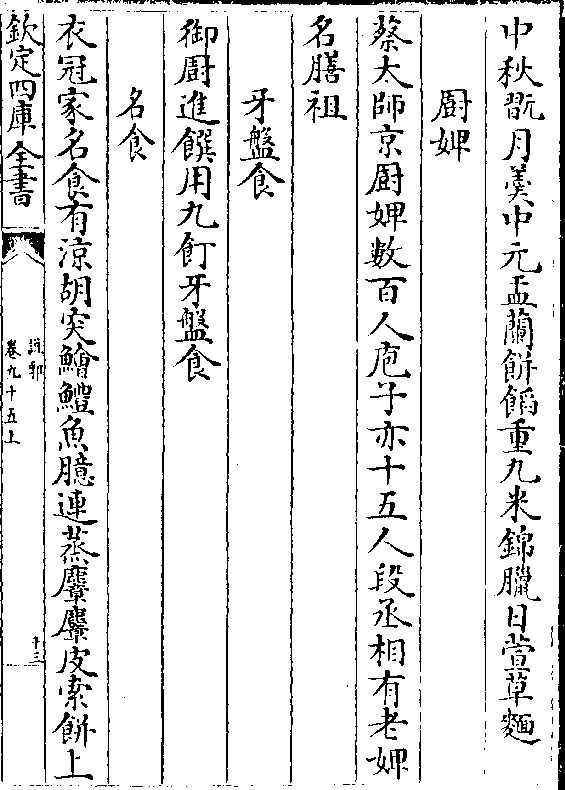 中秋翫月羹中元盂蘭餅餡重九米錦臘日萱草麵
廚婢
蔡太師京廚婢數百人庖子亦十五人段丞相有老婢
名膳祖
牙盤食
御廚進饌用九飣牙盤食
名食
衣冠家名食有涼胡突鱠鱧魚臆連蒸麞麞皮索餅上
欽定四庫全書
說郛
卷九十五上
十三